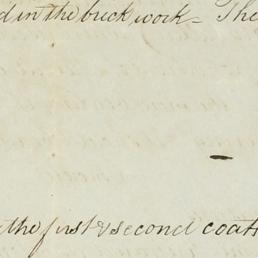 d in the brick work - The
the first & second coat